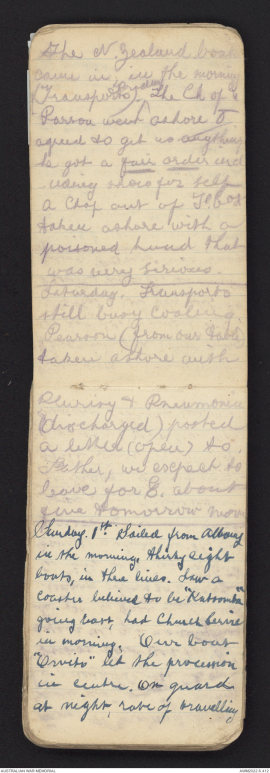 The N Zealand boats
came in, in the morning
(Transports) Friday The Ch of E
Parson went ashore &
agreed to get us anything
he got a fair order incl
shoes for self
A Chap out of
taken ashore with a
poisoned hand that
was very serious.
Saturday. Transports
still busy coaling.
Pearson (from our table)
taken ashore with
Pleurisy & Pneumonia
(discharged) posted
a letter (open) to
Father, we expect to
leave for E. about
five tomorrow morn
Sunday. 1st. Sailed from Albany
in the morning, thirty eight
boats, in three lines. Saw a
coaster believed to be "Katoomba"
going East, had Church Service
in morning. Our boat
"Orvieto" led the procession
in centre. On guard
at night, rate of travelling
AUSTRALIAN WAR MEMORIAL